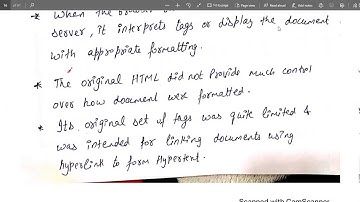 server, it interprets tags or display the document
with appropriate formatting.
* The original HTML did not provide much control
over how document were formatted.
* Its original set of tags was quite limited &
was intended for linking documents using
hyperlink to form Hypertent.
Scanned with CamScanner